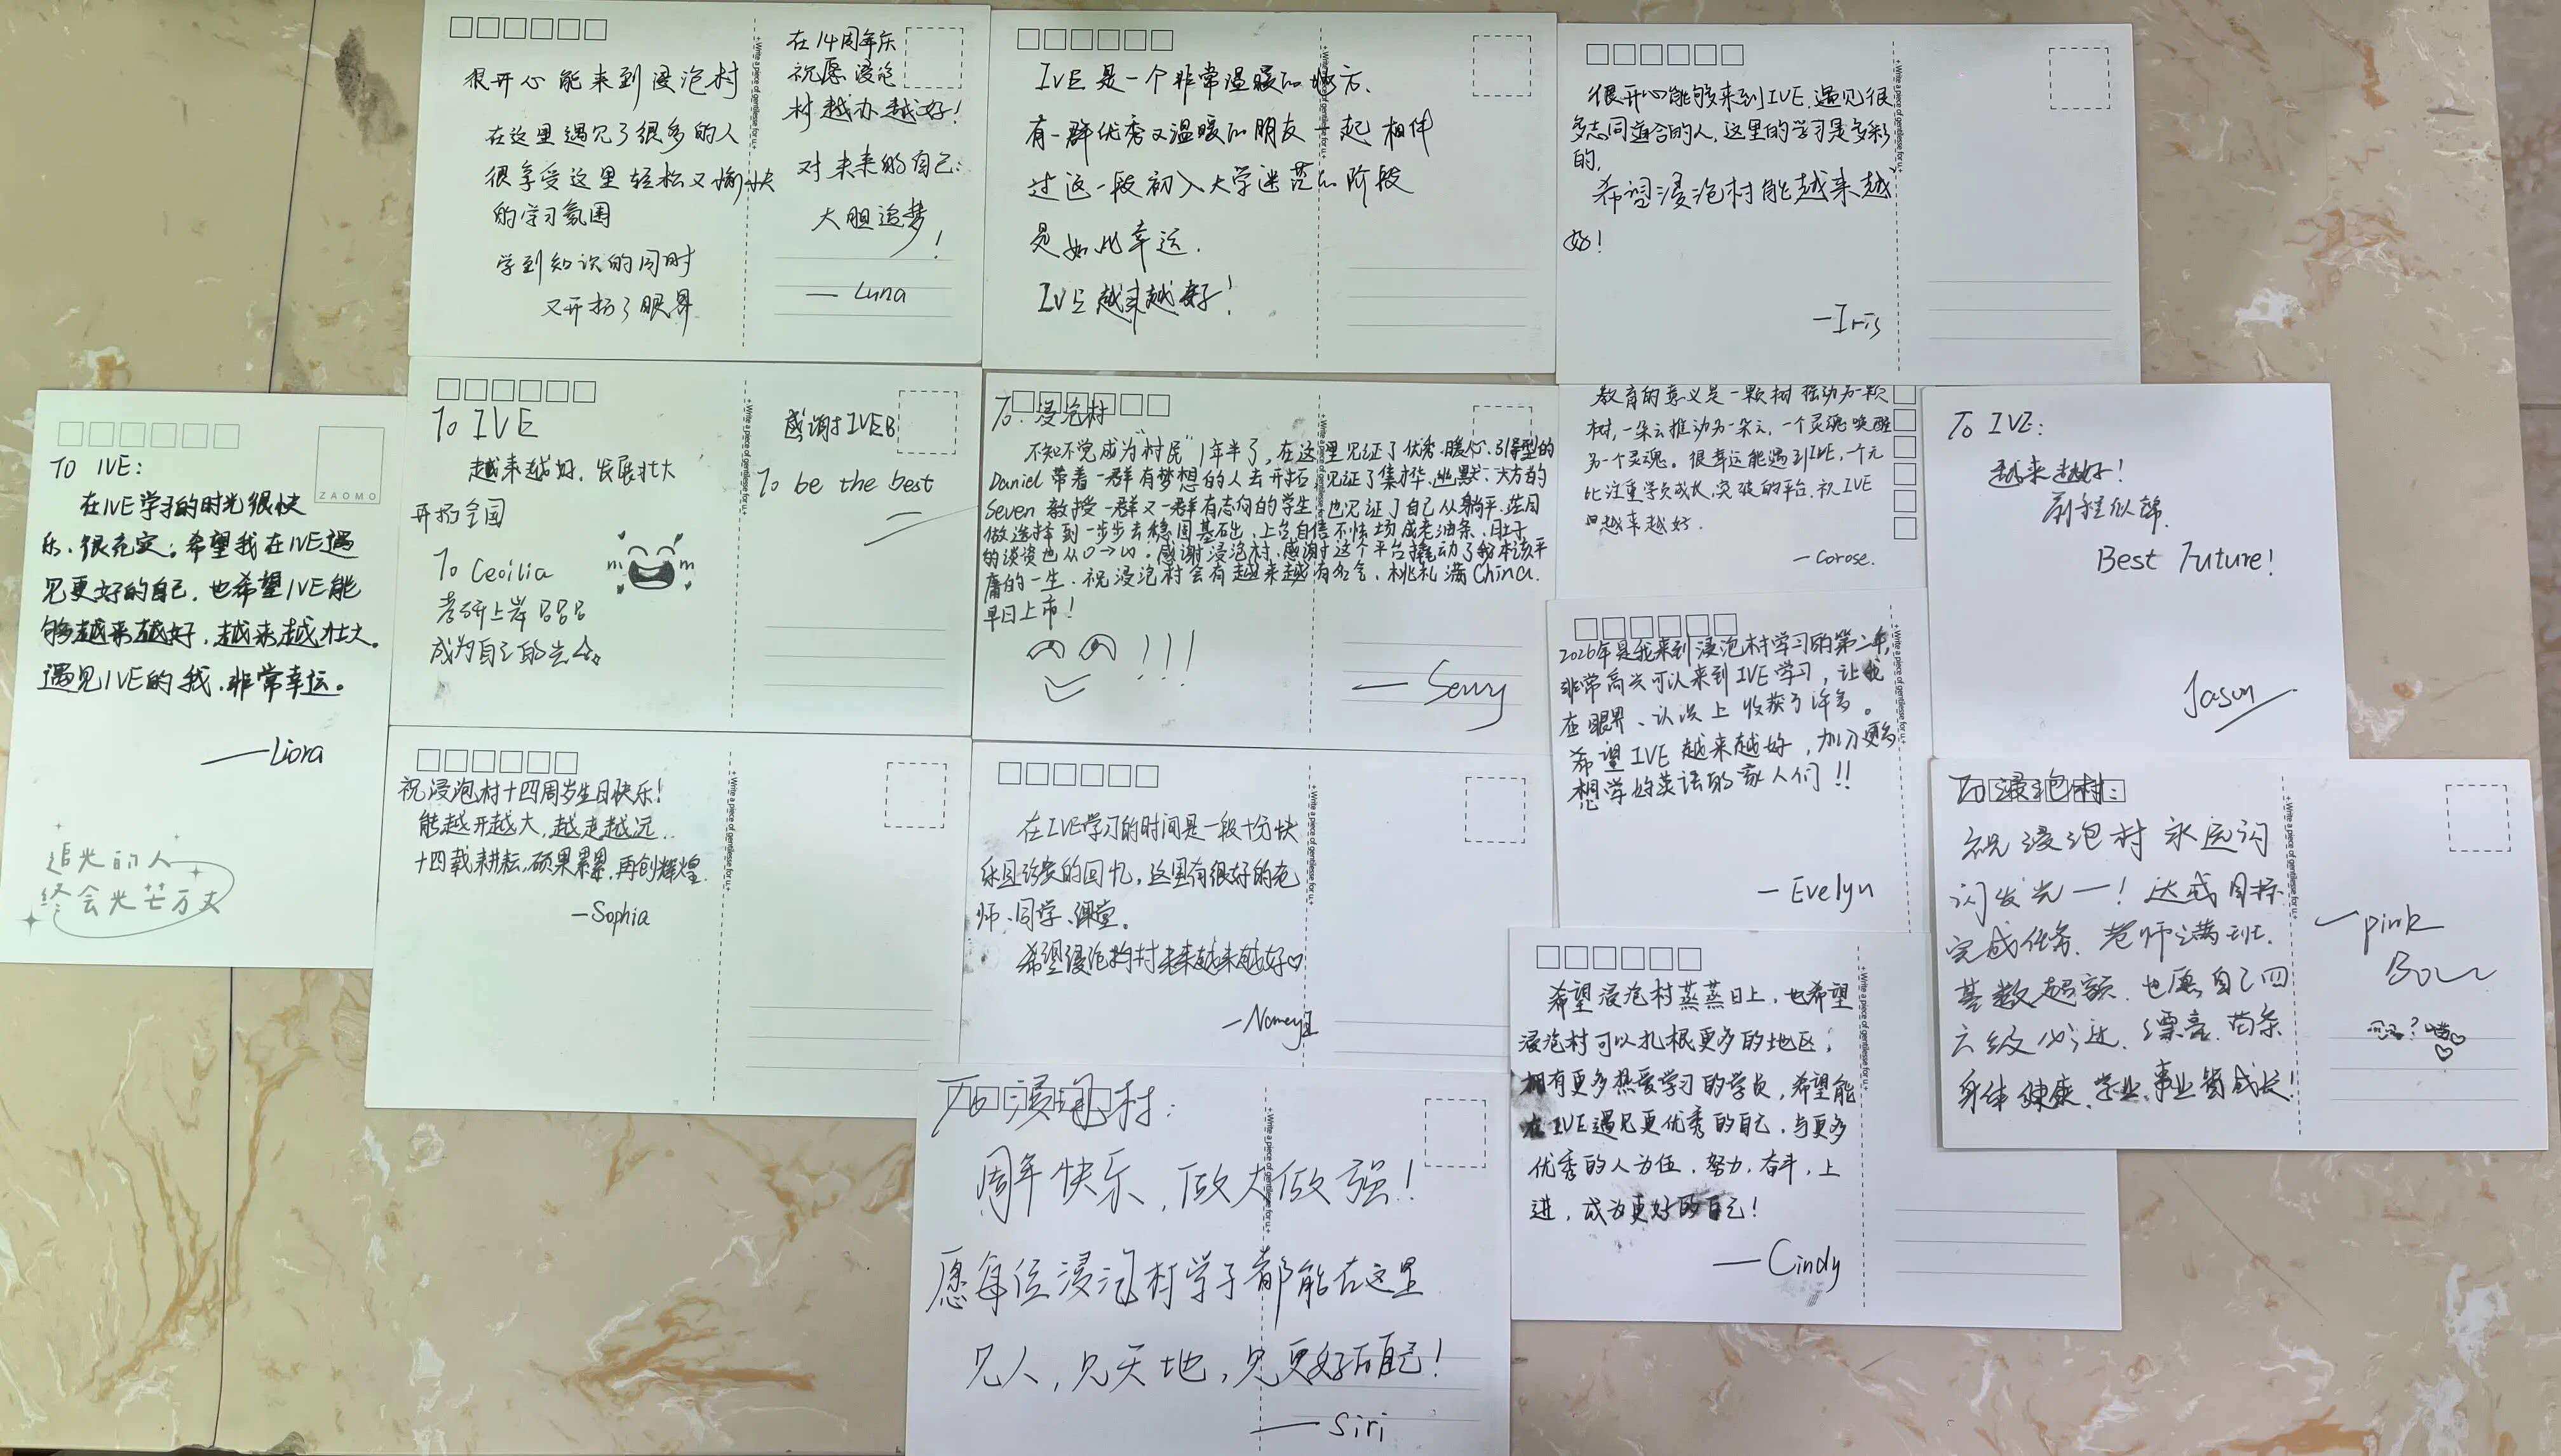 很开心能来到浸泡村
在这里遇见了很多的人
很享受这里轻松又愉快
的学习氛围
学到知识的同时
又开拓了眼界
在14周年乐
祝愿浸泡
村越办越好!
对未来的自己:
大胆追梦!
— Luna
IVE是一个非常温暖的地方、
有一群优秀又温暖的朋友一起相伴
过这一段初入大学迷茫的阶段
是如此幸运.
IVE越来越好!
很开心能够来到IVE.遇见很
多志同道合的人,这里的学习是多彩
的,
希望浸泡村能越来越
好!
—Iris
TO IVE:
在IVE学习的时光很快
乐、很充实。希望我在IVE遇
见更好的自己,也希望IVE能
够越来越好,越来越壮大。
遇见IVE的我,非常幸运。
—Liora
ZAOMO
追光的人
终会光芒万丈
To IVE
越来越好、发展壮大
开拓全国
To Ceoilia
考研上岸
成为自己的光
感谢IVEB
To be the best
To:浸泡村
不知不觉成为"村民"1年半了,在这里见证了优秀、暖心、引导型的
Daniel带着一群有梦想的人去开拓,见证了集才华、幽默、大方的
Seven教授一群又一群有志向的学生,也见证了自己从躺平、茫目
做选择到一步步去稳固基础,上台自信不怯场成老油条,肚子
的谈资也从0→∞。感谢浸泡村、感谢这个平台撬动了我本该平
庸的一生.祝浸泡村会有越来越有名气、桃札满China.
早日上市!
!!!
教育的意义是一颗树摇动另一颗
树,一朵云推动另一朵云,一个灵魂唤醒
另一个灵魂。很幸运能遇到IVE,一个无
比注重学员成长,突破的平台.祝IVE
越来越好.
— Corose.
To IVE:
越来越好!
前程似锦.
Best Future!
Jason
2026年是我来到浸泡村学习的第二年,
非常高兴可以来到IVE学习,让我
在眼界、认识上收获了许多。
希望IVE越来越好,加入更多
想学好英语的家人们!!
— Evelyn
祝浸泡村十四周岁生日快乐!
能越开越大,越走越远..
十四载耕耘,硕果累累,再创辉煌.
—Sophia
在IVE学习的时间是一段十分快
乐且珍贵的回忆,这里有很好的老
师、同学、课堂。
希望浸泡村未来越来越好♡
To浸泡村:
祝浸泡村永远闪
闪发光—!达成目标
完成任务.老师满班.
基数超额.也愿自己四
六级必过.漂亮.苗条
身体健康、学业、事业皆成长!
—pink
希望浸泡村蒸蒸日上,也希望
浸泡村可以扎根更多的地区,
拥有更多热爱学习的学员,希望能
在IVE遇见更优秀的自己,与更多
优秀的人为伍,努力,奋斗,上
进,成为更好的自己!
—Cindy
To浸泡村:
周年快乐,做大做强!
愿每位浸泡村学子都能在这里
见人,见天地,见更好的自己!
— Siri